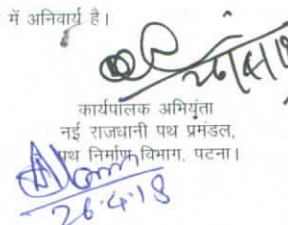 में अनिवार्य है।
कार्यपालक अभियंता
नई राजधानी पथ प्रमंडल,
पथ निर्माण विभाग, पटना।
26.4.18